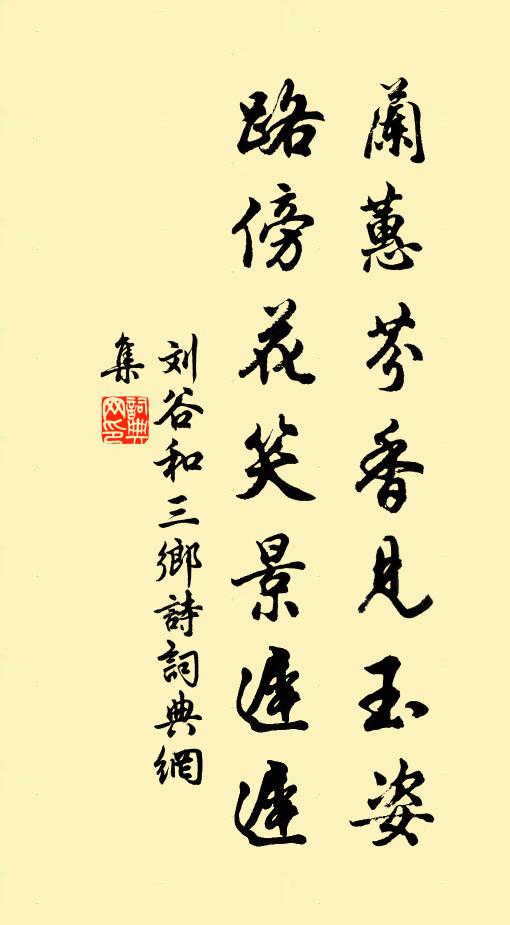 蘭蕙芬香見玉姿
路傍花笑景遲遲
刘谷和三鄉詩詞典網
集
詞典網印